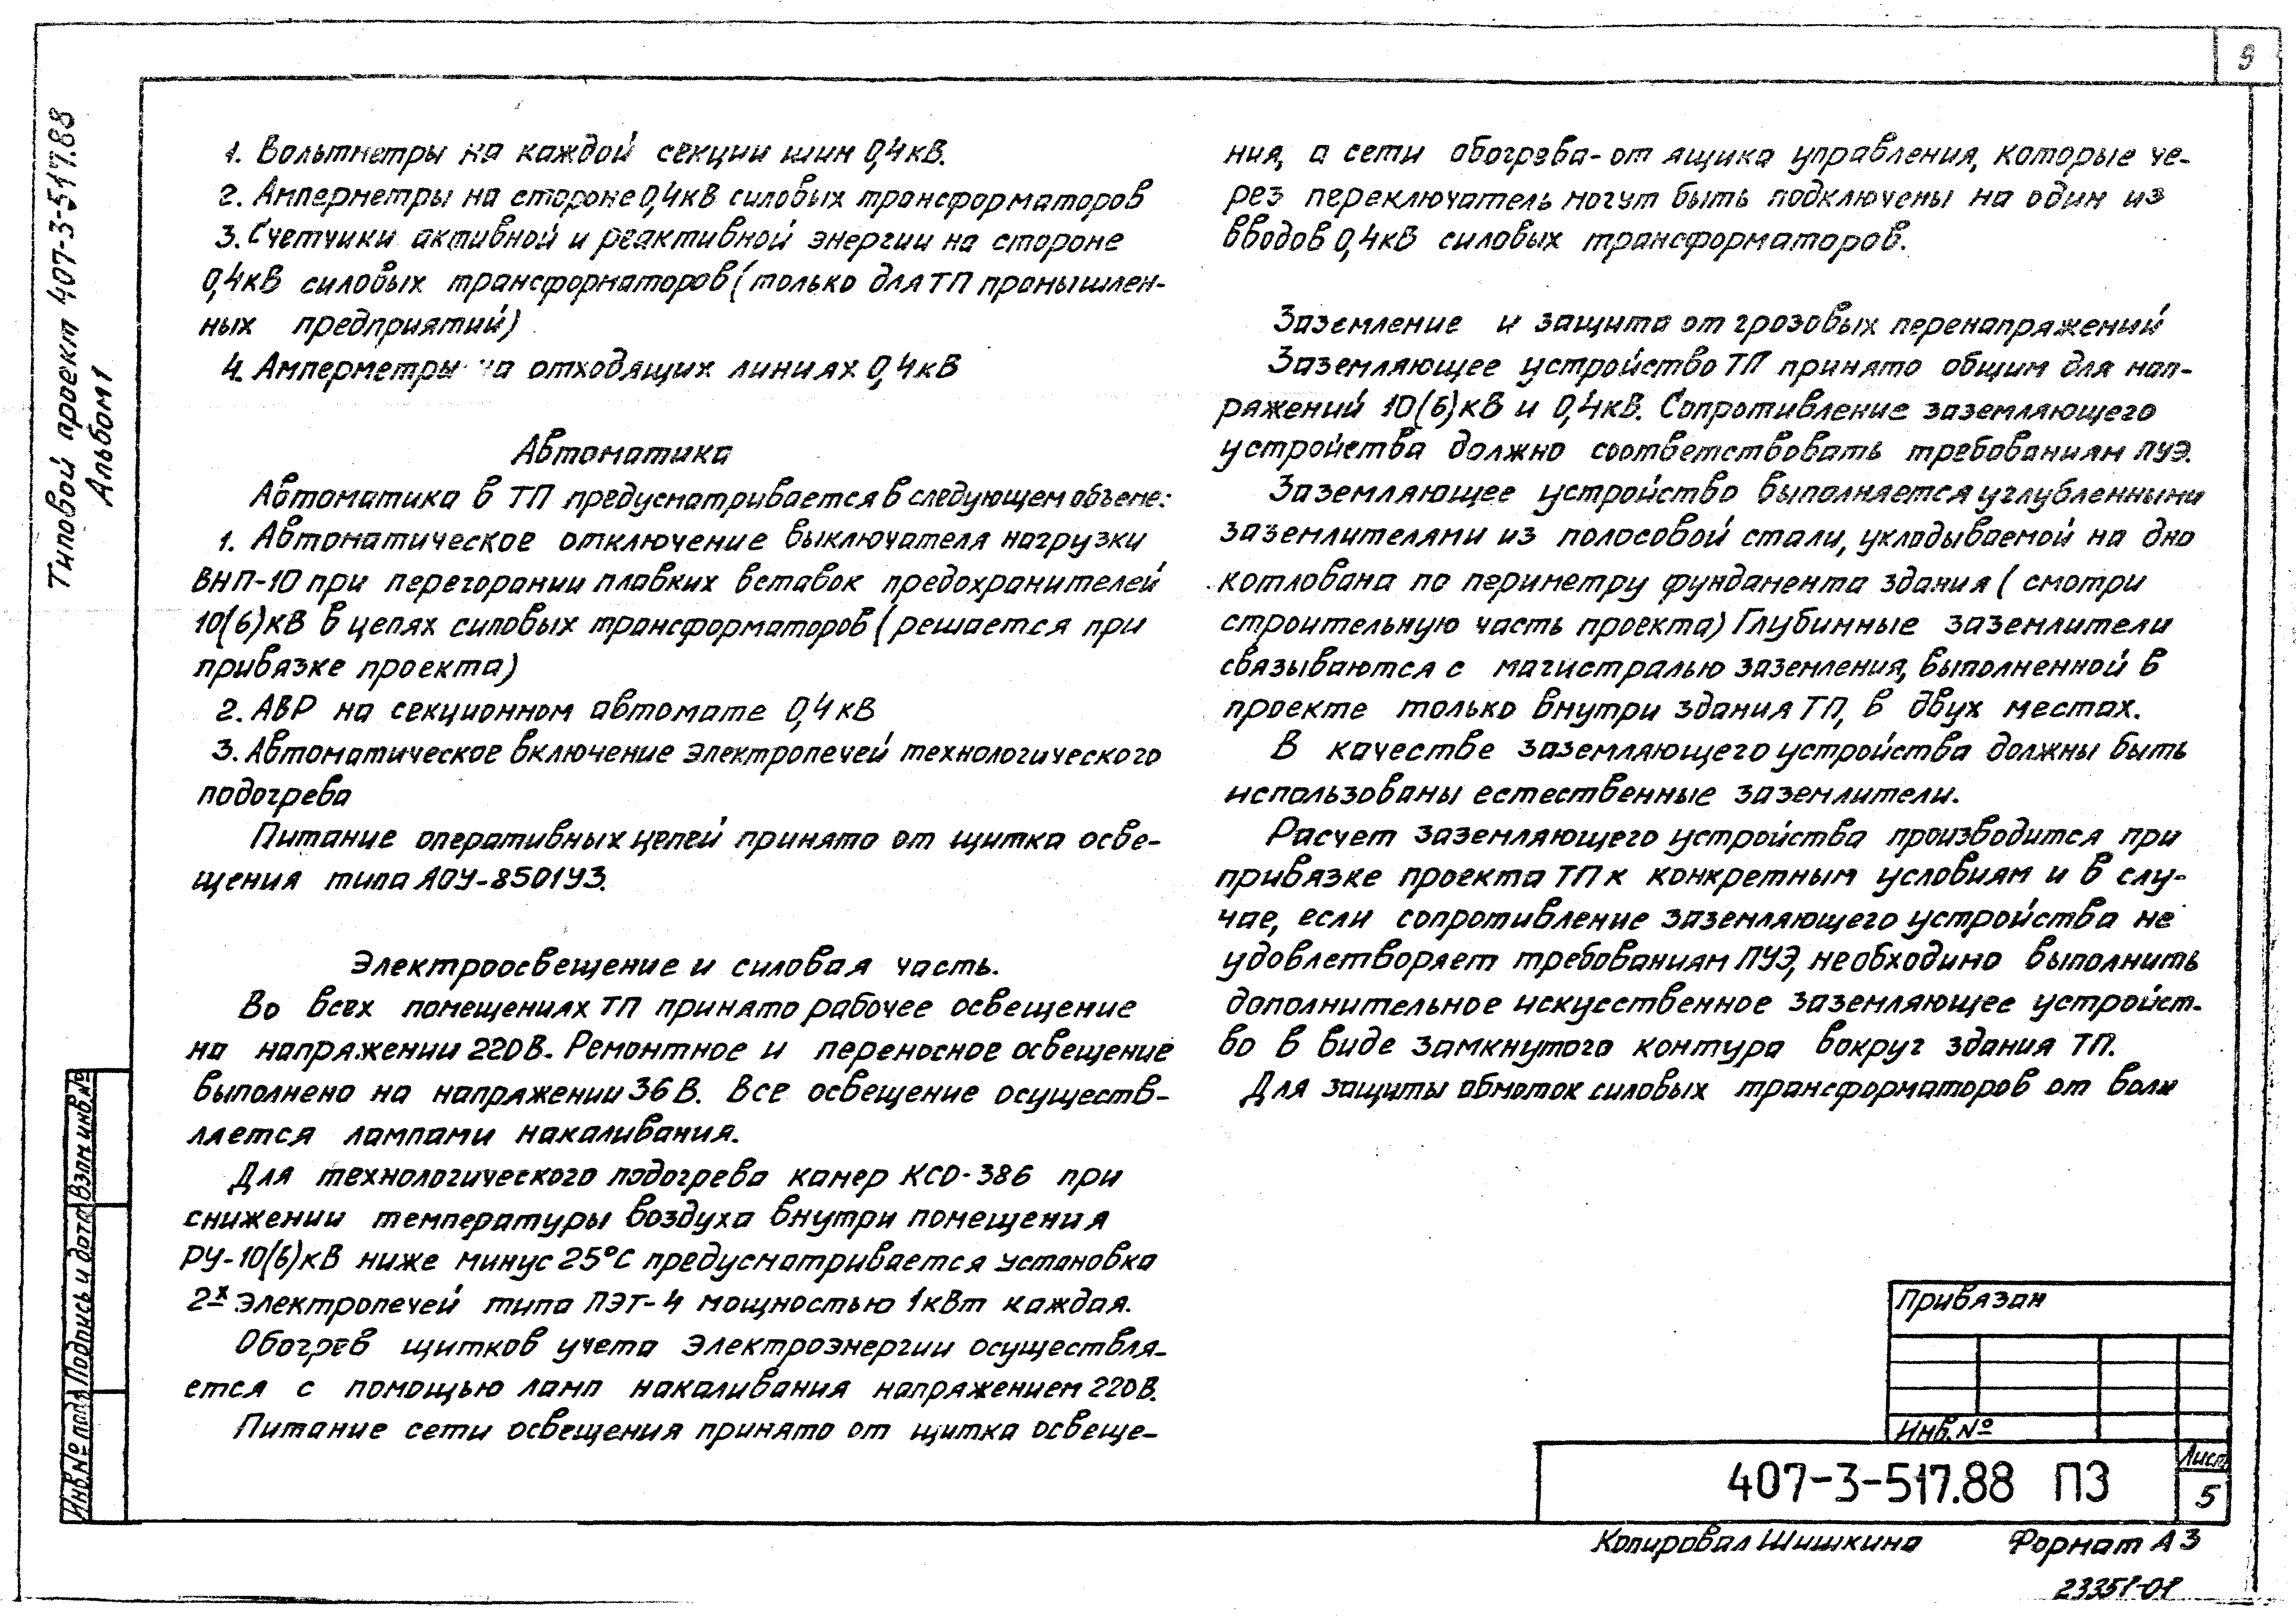 9
Типовой проект 407-3-517.88
Альбом 1
1. Вольтметры на каждой секции шин 0,4кВ.
2. Амперметры на стороне 0,4кВ силовых трансформаторов
3. Счетчики активной и реактивной энергии на стороне
0,4кВ силовых трансформаторов (только для ТП промышлен-
ных предприятий)
4. Амперметры на отходящих линиях 0,4кВ
Автоматика
Автоматика в ТП предусматривается в следующем объеме:
1. Автоматическое отключение выключателя нагрузки
ВНП-10 при перегорании плавких вставок предохранителей
10(6)кВ в цепях силовых трансформаторов (решается при
привязке проекта)
2. АВР на секционном автомате 0,4кВ
3. Автоматическое включение электропечей технологического
подогрева
Питание оперативных цепей принято от щитка осве-
щения типа ЯОУ-8501У3.
Электроосвещение и силовая часть.
Во всех помещениях ТП принято рабочее освещение
на напряжении 220В. Ремонтное и переносное освещение
выполнено на напряжении 36В. Все освещение осуществ-
ляется лампами накаливания.
Для технологического подогрева камер КСО-386 при
снижении температуры воздуха внутри помещения
РУ-10(6)кВ ниже минус 25°С предусматривается установка
2х электропечей типа ПЭТ-4 мощностью 1кВт каждая.
Обогрев щитков учета электроэнергии осуществля-
ется с помощью ламп накаливания напряжением 220В.
Питание сети освещения принято от щитка освеще-
ния, а сети обогрева-от ящика управления, которые че-
рез переключатель могут быть подключены на один из
вводов 0,4кВ силовых трансформаторов.
Заземление и защита от грозовых перенапряжений
Заземляющее устройство ТП принято общим для нап-
ряжений 10(6)кВ и 0,4кВ. Сопротивление заземляющего
устройства должно соответствовать требованиям ПУЭ.
Заземляющее устройство выполняется углубленными
заземлителями из полосовой стали, укладываемой на дно
котлована по периметру фундамента здания (смотри
строительную часть проекта) Глубинные заземлители
связываются с магистралью заземления, выполненной в
проекте только внутри здания ТП, в двух местах.
В качестве заземляющего устройства должны быть
использованы естественные заземлители.
Расчет заземляющего устройства производится при
привязке проекта ТП к конкретным условиям и в слу-
чае, если сопротивление заземляющего устройства не
удовлетворяет требованиям ПУЭ, необходимо выполнить
дополнительное искусственное заземляющее устройст-
во в виде замкнутого контура вокруг здания ТП.
Для защиты обмоток силовых трансформаторов от волн
Привязан
Инв.№
407-3-517.88 ПЗ
Лист
5
Взам инв.№
Подпись и дата
Инв.№ подл
Копировал Шишкина Формат А3
23351-01